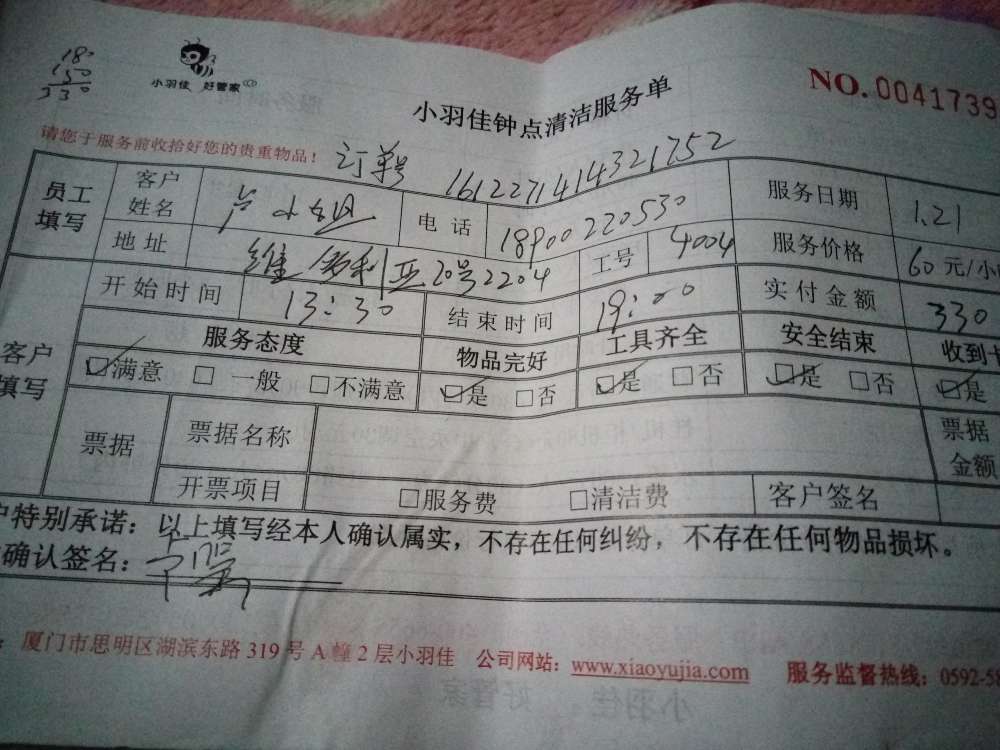 180
150
330
小羽佳 好管家
小羽佳钟点清洁服务单
NO. 0041739
请您于服务前收拾好您的贵重物品！
订单号 1612271414321752
员工填写 客户姓名 卢小姐 电话 18900220530 服务日期 1.21
地址 维多利亚20号2204 工号 4004 服务价格 60元/小
客户填写 开始时间 13:30 结束时间 19:00 实付金额 330
服务态度 物品完好 工具齐全 安全结束 收到卡
☑满意 □一般 □不满意 ☑是 □否 ☑是 □否 ☑是 □否 ☑是
票据 票据名称 票据金额
开票项目 □服务费 □清洁费 客户签名
户特别承诺：以上填写经本人确认属实，不存在任何纠纷，不存在任何物品损坏。
确认签名：
厦门市思明区湖滨东路 319 号 A 幢 2 层小羽佳 公司网站：www.xiaoyujia.com 服务监督热线：0592-58